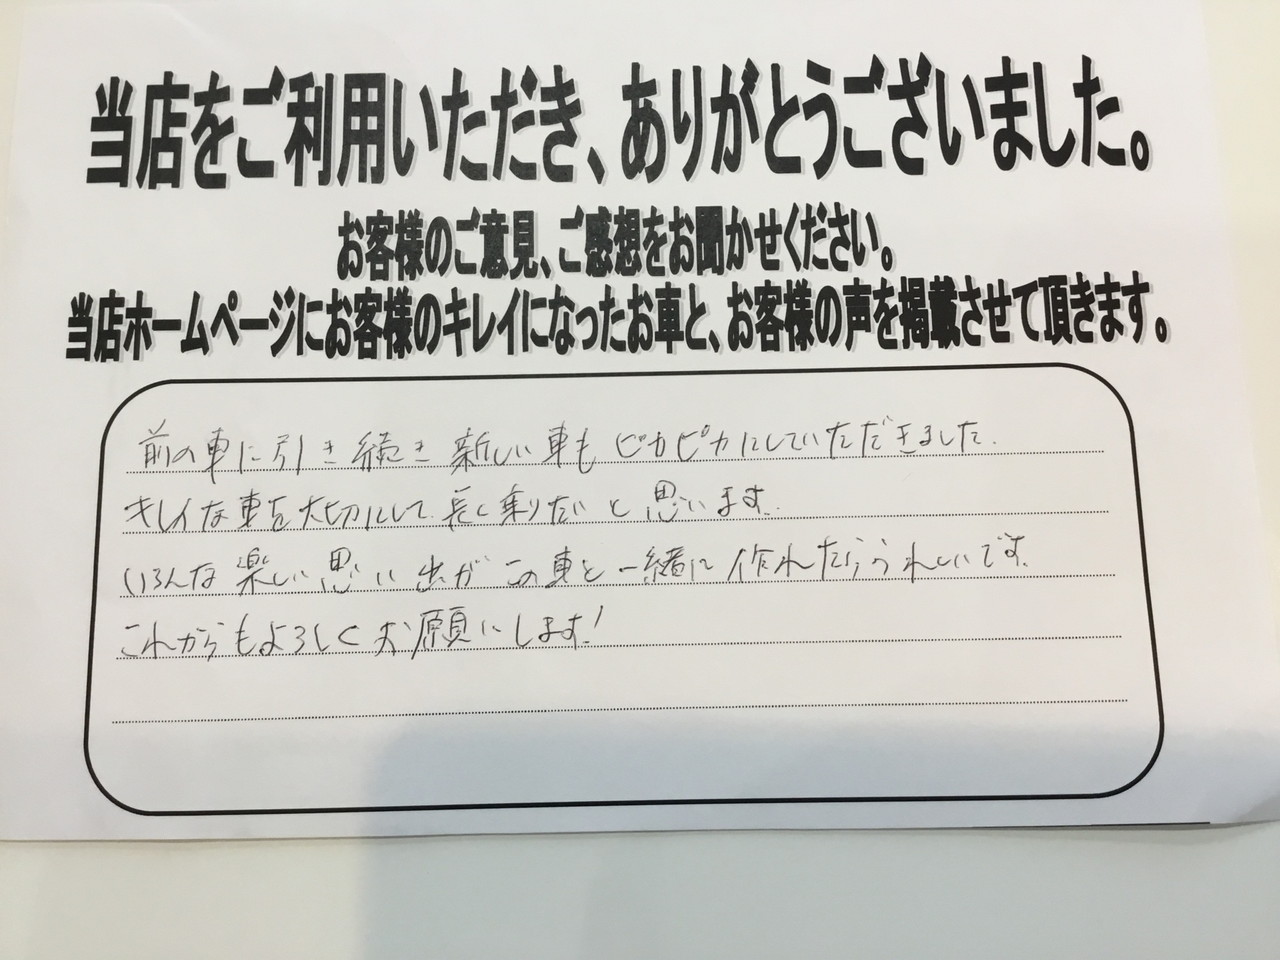 当店をご利用いただき、ありがとうございました。
お客様のご意見、ご感想をお聞かせください。
当店ホームページにお客様のキレイになったお車と、お客様の声を掲載させて頂きます。
前の車に引き続き新しい車もピカピカにしていただきました.
キレイな車を大切にして長く乗りたいと思います.
いろんな楽しい思い出がこの車と一緒に作れたらうれしいです.
これからもよろしくお願いします!